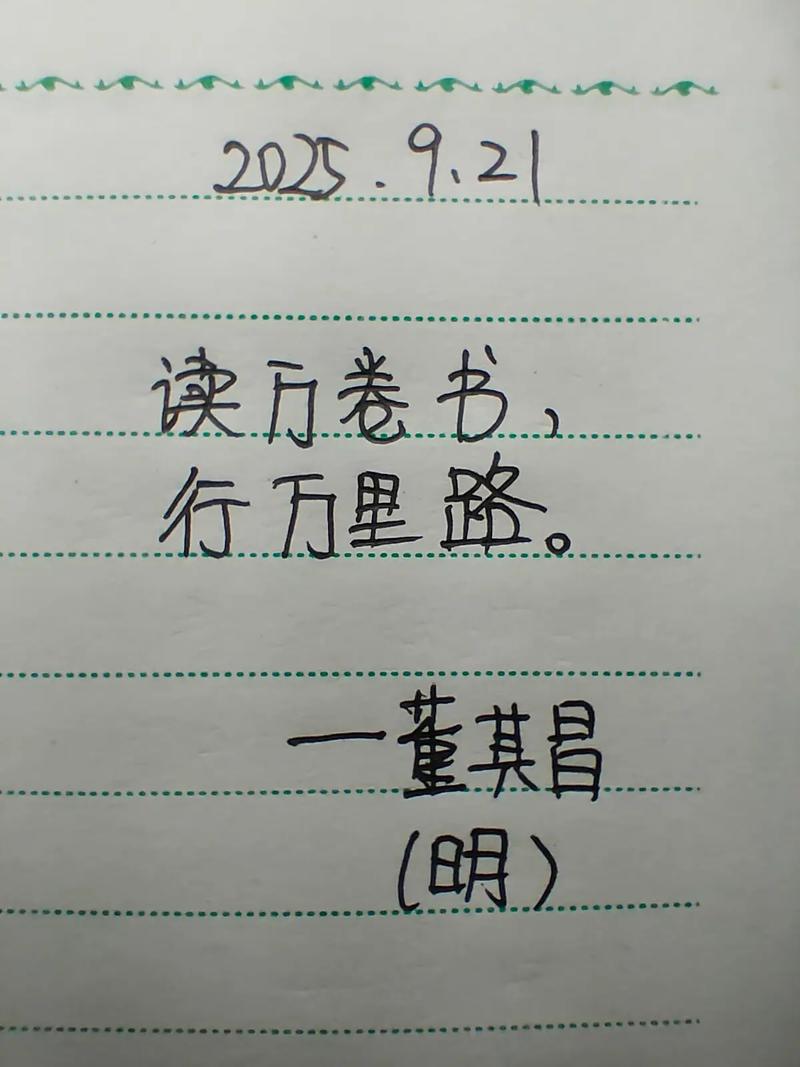 2025.9.21
读万卷书，
行万里路。
—董其昌
（明）